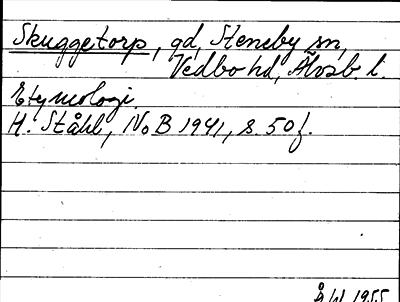 Skuggetorp, gd, Steneby sn,
Vedbo hd, Älvsb. l.
Etymologi.
H. Ståhl, NoB 1941, s. 50 f.
ÅW 1955